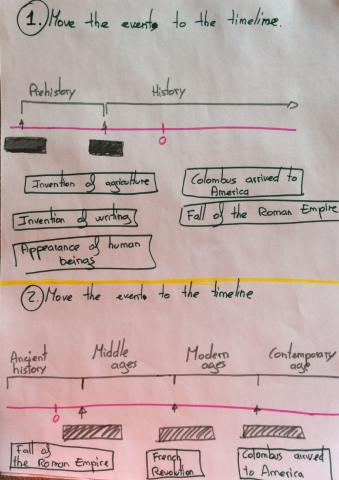 1. Move the events to the timeline.
Prehistory History
0
Invention of agriculture
Colombus arrived to
America
Invention of writing
Fall of the Roman Empire
Appearance of human
beings
2. Move the events to the timeline
Ancient
history
Middle
ages
Modern
ages
Contemporary
age
0
Fall of
the Roman Empire
French
Revolution
Colombus arrived
to America